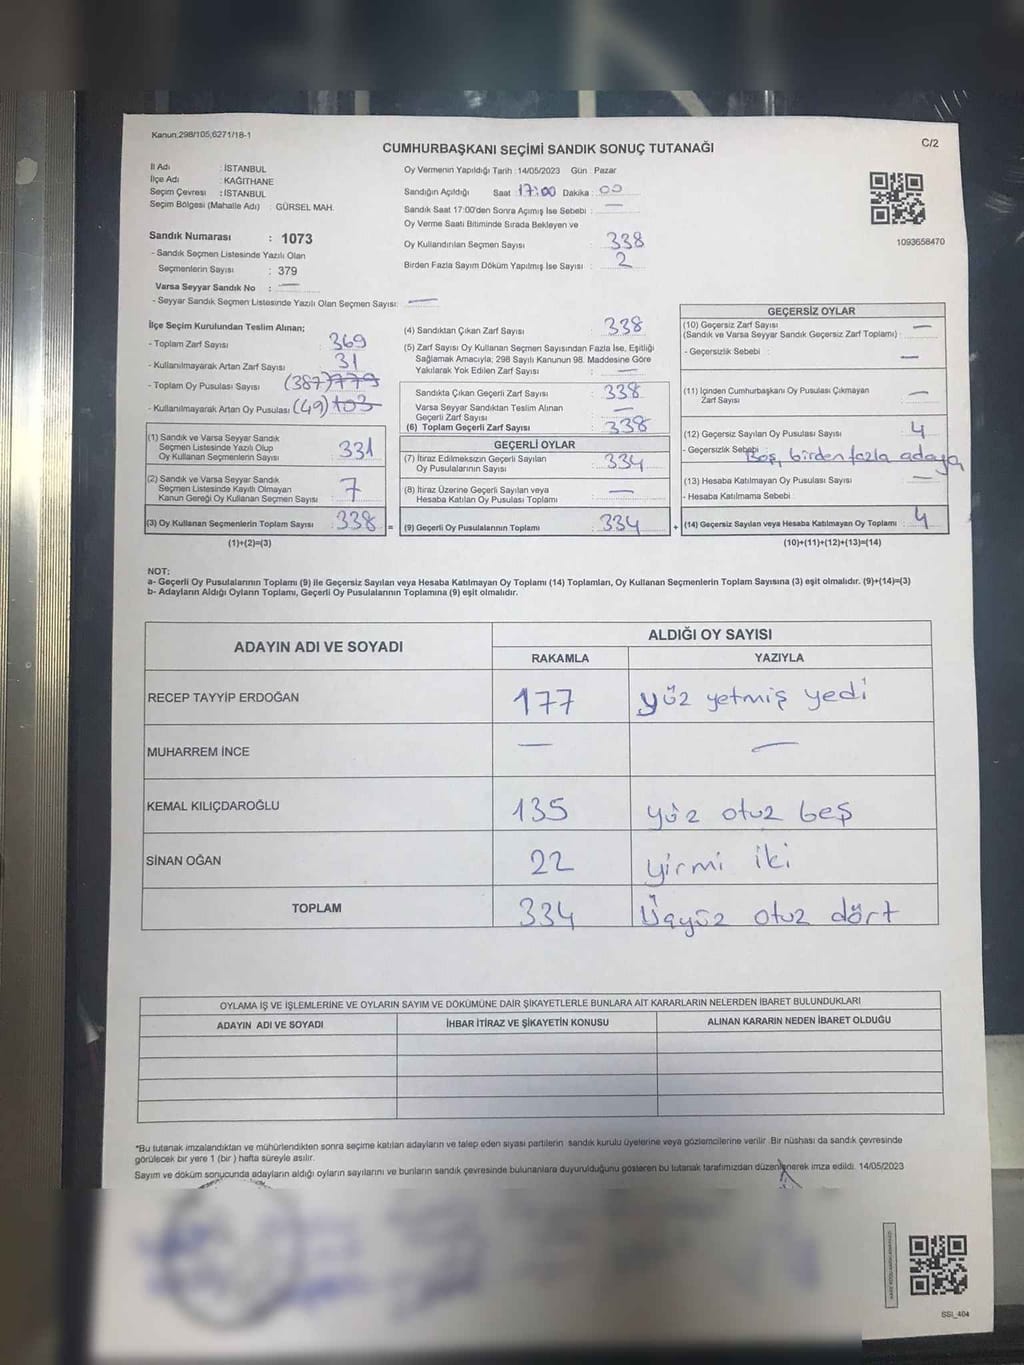 Kanun,298/105,6271/18-1
C/2
CUMHURBAŞKANI SEÇİMİ SANDIK SONUÇ TUTANAĞI
İl Adı : İSTANBUL
İlçe Adı : KAĞITHANE
Seçim Çevresi : İSTANBUL
Seçim Bölgesi (Mahalle Adı) : GÜRSEL MAH.
Sandık Numarası : 1073
- Sandık Seçmen Listesinde Yazılı Olan
Seçmenlerin Sayısı : 379
Varsa Seyyar Sandık No : —
- Seyyar Sandık Seçmen Listesinde Yazılı Olan Seçmen Sayısı: —
Oy Vermenin Yapıldığı Tarih : 14/05/2023 Gün : Pazar
Sandığın Açıldığı Saat : 17:00 Dakika : 00
Sandık Saat 17:00'den Sonra Açımış İse Sebebi : —
Oy Verme Saati Bitiminde Sırada Bekleyen ve
Oy Kullandırılan Seçmen Sayısı : 338
Birden Fazla Sayım Döküm Yapılmış İse Sayısı : 2
1093658470
İlçe Seçim Kurulundan Teslim Alınan;
- Toplam Zarf Sayısı : 369
- Kullanılmayarak Artan Zarf Sayısı : 31
- Toplam Oy Pusulası Sayısı : (387) 779
- Kullanılmayarak Artan Oy Pusulası : (49) 103
(1) Sandık ve Varsa Seyyar Sandık
Seçmen Listesinde Yazılı Olup
Oy Kullanan Seçmenlerin Sayısı : 331
(2) Sandık ve Varsa Seyyar Sandık
Seçmen Listesinde Kayıtlı Olmayan
Kanun Gereği Oy Kullanan Seçmen Sayısı : 7
(3) Oy Kullanan Seçmenlerin Toplam Sayısı : 338
(1)+(2)=(3)
(4) Sandıktan Çıkan Zarf Sayısı : 338
(5) Zarf Sayısı Oy Kullanan Seçmen Sayısından Fazla İse, Eşitliği
Sağlamak Amacıyla; 298 Sayılı Kanunun 98. Maddesine Göre
Yakılarak Yok Edilen Zarf Sayısı : —
Sandıkta Çıkan Geçerli Zarf Sayısı : 338
Varsa Seyyar Sandıktan Teslim Alınan
Geçerli Zarf Sayısı : —
(6) Toplam Geçerli Zarf Sayısı : 338
GEÇERLİ OYLAR
(7) İtiraz Edilmeksizin Geçerli Sayılan
Oy Pusulalarının Sayısı : 334
(8) İtiraz Üzerine Geçerli Sayılan veya
Hesaba Katılan Oy Pusulası Toplamı : —
= (9) Geçerli Oy Pusulalarının Toplamı : 334 +
GEÇERSİZ OYLAR
(10) Geçersiz Zarf Sayısı
(Sandık ve Varsa Seyyar Sandık Geçersiz Zarf Toplamı) : —
- Geçersizlik Sebebi : —
(11) İçinden Cumhurbaşkanı Oy Pusulası Çıkmayan
Zarf Sayısı : —
(12) Geçersiz Sayılan Oy Pusulası Sayısı : 4
- Geçersizlik Sebebi Boş, birden fazla adaya
(13) Hesaba Katılmayan Oy Pusulası Sayısı : —
- Hesaba Katılmama Sebebi :
(14) Geçersiz Sayılan veya Hesaba Katılmayan Oy Toplamı : 4
(10)+(11)+(12)+(13)=(14)
NOT:
a- Geçerli Oy Pusulalarının Toplamı (9) ile Geçersiz Sayılan veya Hesaba Katılmayan Oy Toplamı (14) Toplamları, Oy Kullanan Seçmenlerin Toplam Sayısına (3) eşit olmalıdır. (9)+(14)=(3)
b- Adayların Aldığı Oyların Toplamı, Geçerli Oy Pusulalarının Toplamına (9) eşit olmalıdır.
ADAYIN ADI VE SOYADI ALDIĞI OY SAYISI
RAKAMLA YAZIYLA
RECEP TAYYİP ERDOĞAN 177 yüz yetmiş yedi
MUHARREM İNCE — —
KEMAL KILIÇDAROĞLU 135 yüz otuz beş
SİNAN OĞAN 22 yirmi iki
TOPLAM 334 Üçyüz otuz dört
OYLAMA İŞ VE İŞLEMLERİNE VE OYLARIN SAYIM VE DÖKÜMÜNE DAİR ŞİKAYETLERLE BUNLARA AİT KARARLARIN NELERDEN İBARET BULUNDUKLARI
ADAYIN ADI VE SOYADI İHBAR İTİRAZ VE ŞİKAYETİN KONUSU ALINAN KARARIN NEDEN İBARET OLDUĞU
*Bu tutanak imzalandıktan ve mühürlendikten sonra seçime katılan adayların ve talep eden siyasi partilerin sandık kurulu üyelerine veya gözlemcilerine verilir. Bir nüshası da sandık çevresinde
görülecek bir yere 1 (bir ) hafta süreyle asılır.
Sayım ve döküm sonucunda adayların aldığı oyların sayılarını ve bunların sandık çevresinde bulunanlara duyurulduğunu gösteren bu tutanak tarafımızdan düzenlenerek imza edildi. 14/05/2023
SSI_404